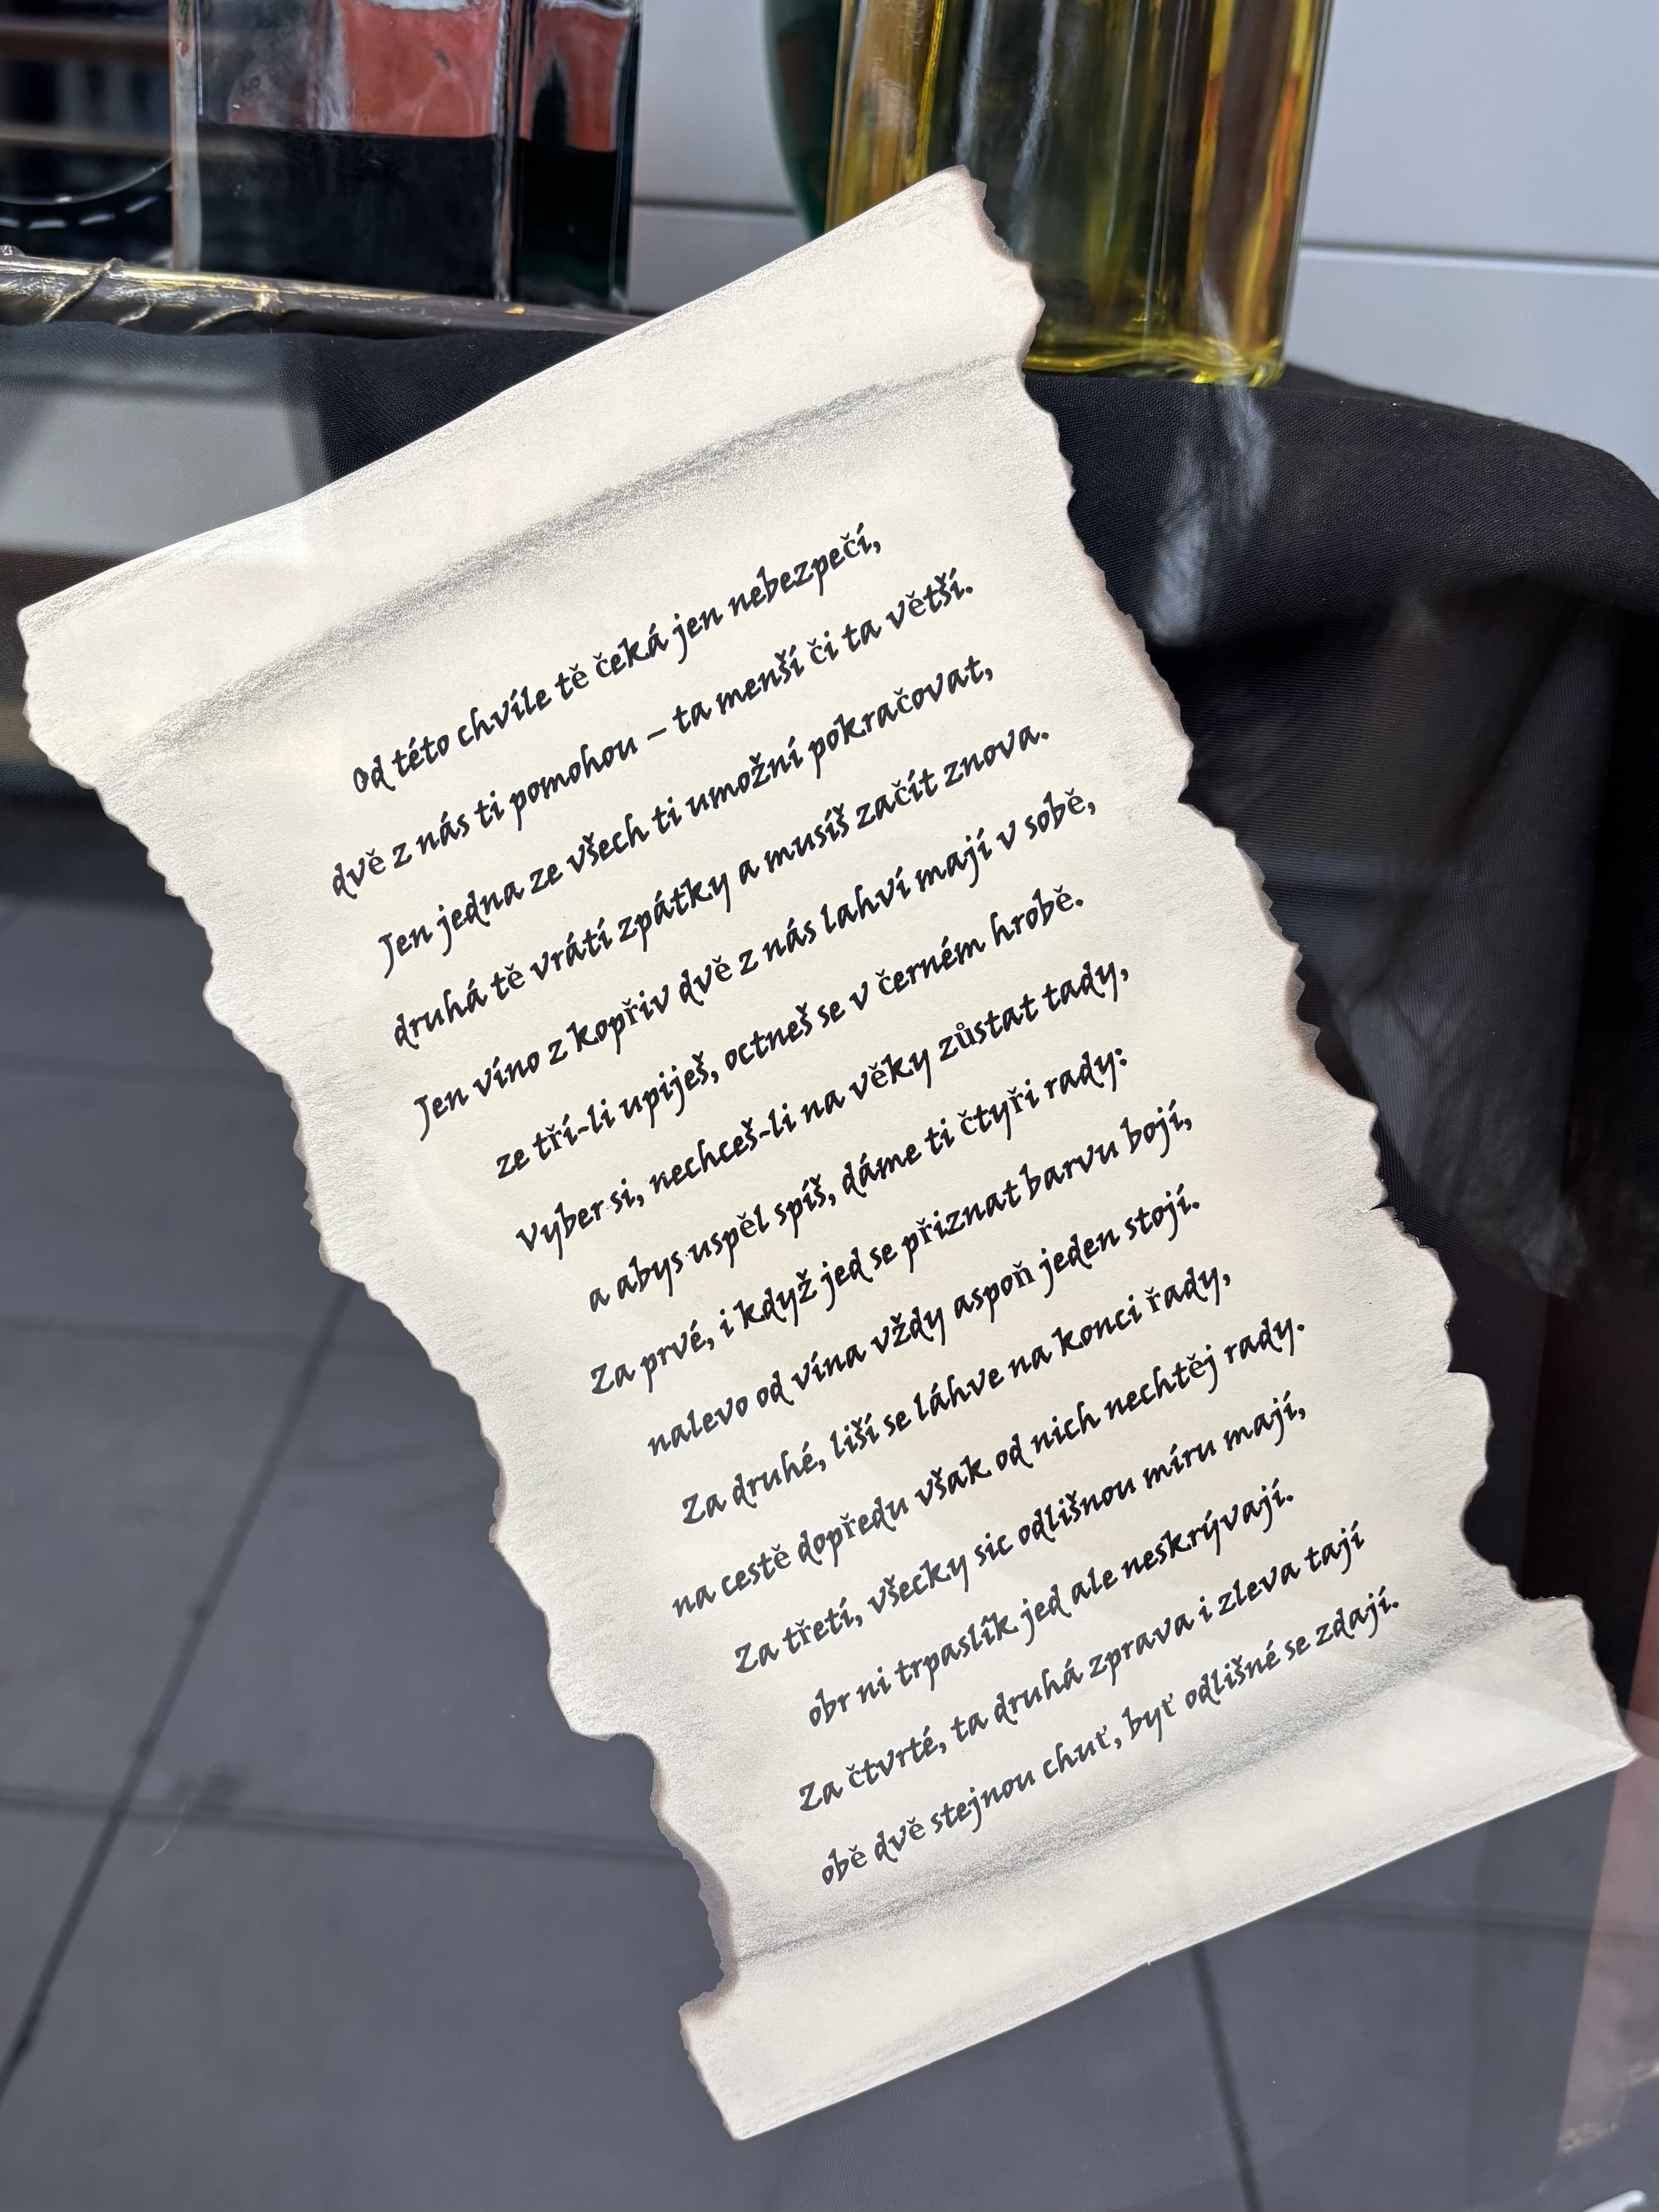 Od této chvíle tě čeká jen nebezpečí,
dvě z nás ti pomohou – ta menší či ta větší.
Jen jedna ze všech ti umožní pokračovat,
druhá tě vrátí zpátky a musíš začít znova.
Jen víno z kopřiv dvě z nás lahví mají v sobě,
ze tří-li upiješ, octneš se v černém hrobě.
Vyber si, nechceš-li na věky zůstat tady,
a abys uspěl spíš, dáme ti čtyři rady:
Za prvé, i když jed se přiznat barvu bojí,
nalevo od vína vždy aspoň jeden stojí.
Za druhé, liší se láhve na konci řady,
na cestě dopředu však od nich nechtěj rady.
Za třetí, všecky sic odlišnou míru mají,
obr ni trpaslík jed ale neskrývají.
Za čtvrté, ta druhá zprava i zleva tají
obě dvě stejnou chuť, byť odlišné se zdají.